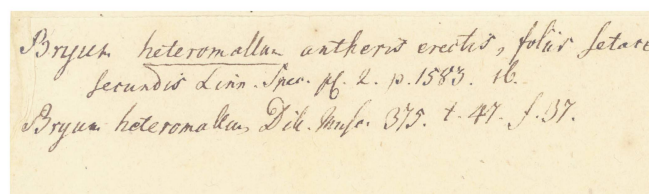 Bryum heteromallum antheris erectis, foliis setac
secundis Linn. Spec. pl. 2. p. 1583. 16.
Bryum heteromallum, Dill. Musc. 375. t. 47. f. 37.